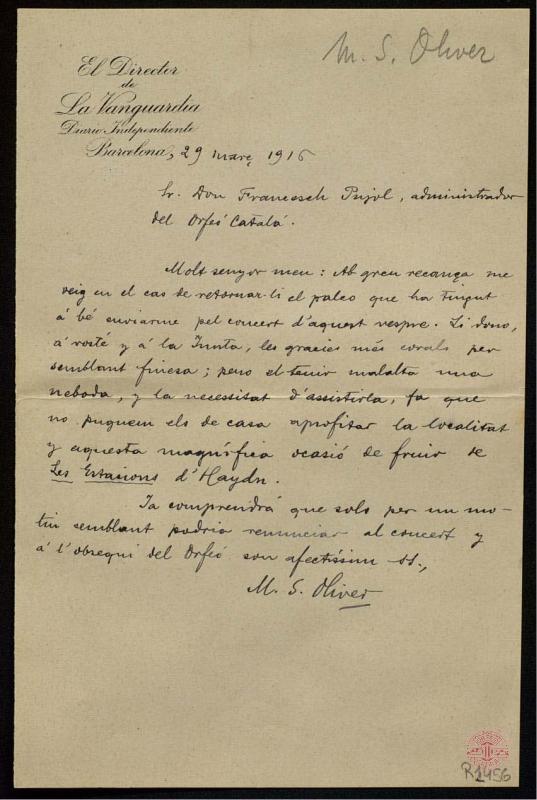 M. S. Oliver
El Director
de
La Vanguardia
Diario Independiente
Barcelona, 29 març 1916
Sr. Don Francesch Pujol, administrador
del Orfeó Català.
Molt senyor meu: Ab greu recança me
veig en el cas de retornar-li el palco que ha tingut
á bé enviarme pel concert d'aquest vespre. Li dono,
á vosté y á la Junta, les gracies més corals per
semblant finesa; pero el tenir malalta una
neboda, y la necessitat d'assistirla, fa que
no puguem els de casa aprofitar la localitat
y aquesta magnífica ocasió de fruir de
Les Estacions d'Haydn.
Ja comprendrá que sols per un mo-
tiu semblant podria renunciar al concert y
á l'obsequi del Orfeó son afectíssim ss.,
M. S. Oliver
R1456